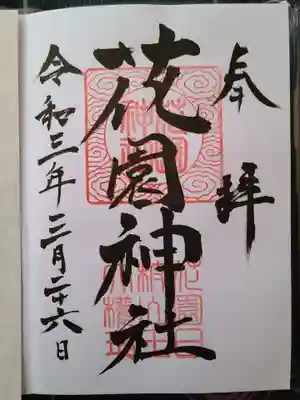 奉拝
花園神社
令和三年三月二十六日